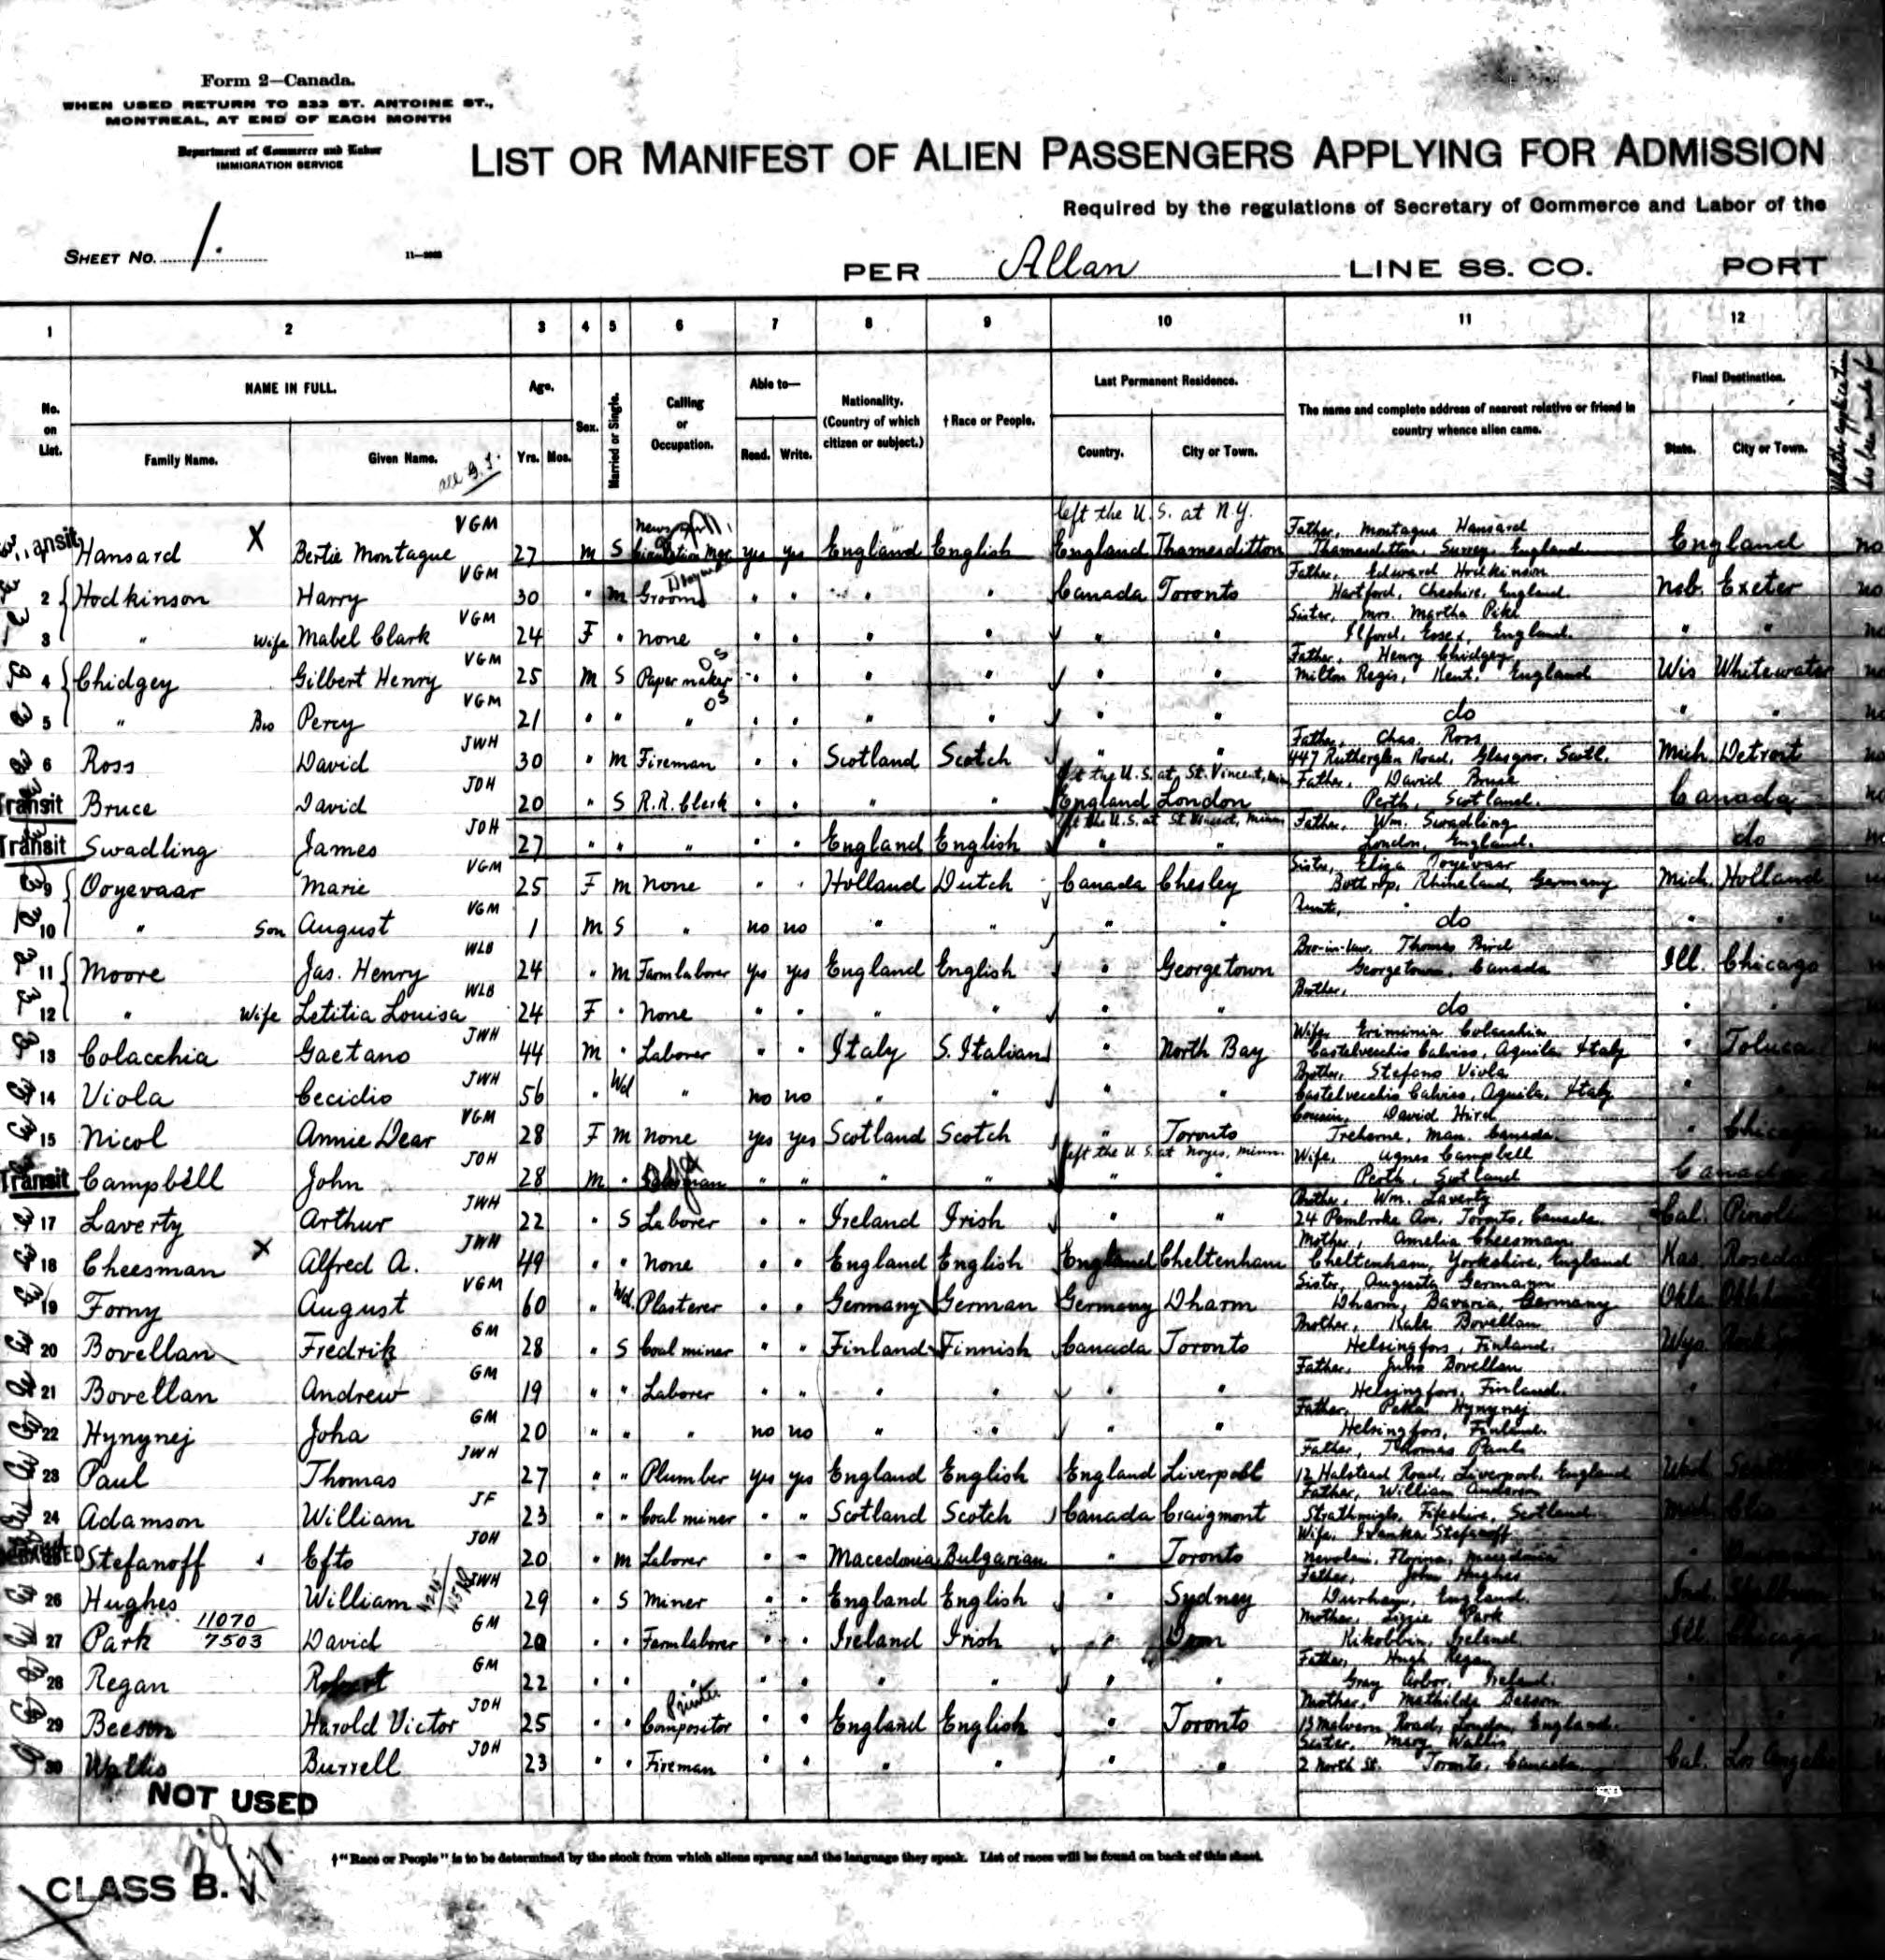 Form 2—Canada.
WHEN USED RETURN TO 333 ST. ANTOINE ST.,
MONTREAL, AT END OF EACH MONTH
Department of Commerce and Labor
IMMIGRATION SERVICE
LIST OR MANIFEST OF ALIEN PASSENGERS APPLYING FOR ADMISSION
Required by the regulations of Secretary of Commerce and Labor of the
SHEET No. 1.
PER Allan LINE SS. CO. PORT
1 2 3 4 5 6 7 8 9 10 11 12
No. on List. NAME IN FULL. Family Name. Given Name. Age. Yrs. Mos. Sex. Married or Single. Calling or Occupation. Able to— Read. Write. Nationality. (Country of which citizen or subject.) †Race or People. Last Permanent Residence. Country. City or Town. The name and complete address of nearest relative or friend in country whence alien came. Final Destination. State. City or Town. Whether application has been made for
left the U.S. at N.Y.
Hansard X Bertie Montague VGM 27 m S Circulation Mgr yes yes England English England Thamesditton Father, Montague Hansard Thamesditton, Surrey, England England no
2 Hodkinson Harry VGM 30 " m Groom " " " " Canada Toronto Father, Edward Hodkinson Hartford, Cheshire, England. Neb. Exeter no
3 " Wife Mabel Clark VGM 24 F " none " " " " " " Sister, Mrs. Martha Pike Ilford, Essex, England. " "
4 Chidgey Gilbert Henry VGM 25 m S Paper maker OS " " " " " " Father, Henry Chidgey Milton Regis, Kent, England Wis Whitewater
5 " Bro Percy VGM 21 " " " OS " " " " " " do " "
6 Ross David JWH 30 " m Fireman " " Scotland Scotch " " Father, Chas. Ross 447 Rutherglen Road, Glasgow, Scotl. Mich. Detroit
left the U.S. at St. Vincent, Minn
Transit Bruce David JOH 20 " S R.R. Clerk " " " " England London Father, David Bruce Perth, Scotland. Canada
left the U.S. at St Vincent, Minn
Transit Swadling James JOH 27 " " " " " England English " " Father, Wm. Swadling London, England. do
9 Ooyevaar Marie VGM 25 F m none " " Holland Dutch Canada Chesley Sister, Eliza Ooyevaar Bottrop, Rhineland, Germany Mich. Holland
10 " Son August VGM 1 m S " no no " " " " Aunt, do " "
11 Moore Jas. Henry WLB 24 " m Farmlaborer yes yes England English " Georgetown Bro-in-law, Thomas Bird Georgetown, Canada Ill. Chicago
12 " Wife Letitia Louisa WLB 24 F " none " " " " " " Brother, do " "
13 Colacchia Gaetano JWH 44 m " Laborer " " Italy S. Italian " North Bay Wife, Eriminia Colacchia Castelvecchio Calviso, Aquila, Italy " Toluca
14 Viola Cecidio JWH 56 " Wd " no no " " " " Brother, Stefano Viola Castelvecchio Calviso, Aquila, Italy " "
15 Nicol Annie Dear VGM 28 F m none yes yes Scotland Scotch " Toronto Cousin, David Hird Treherne, Man. Canada. "
left the U.S. at Noyes, Minn.
Transit Campbell John JOH 28 m " " " " " " " Wife, Agnes Campbell Perth, Scotland Canada
17 Laverty Arthur JWH 22 " S Laborer " " Ireland Irish " " Brother, Wm. Laverty 24 Pembroke Ave, Toronto, Canada. Cal.
18 Cheesman X Alfred A. JWH 49 " " none " " England English England Cheltenham Mother, Amelia Cheesman Cheltenham, Yorkshire, England Kas.
19 Forny August VGM 60 " Wd. Plasterer " " Germany German Germany Dharm Sister, Augusta Germann Dharm, Bavaria, Germany Okla
20 Bovellan Fredrik GM 28 " S Coal miner " " Finland Finnish Canada Toronto Mother, Kale Bovellan Helsingfors, Finland. Wyo.
21 Bovellan Andrew GM 19 " " Laborer " " " " " " Father, Juho Bovellan Helsingfors, Finland. "
22 Hynynej Joha GM 20 " " " no no " " " " Father, Pekka Hynynej Helsingfors, Finland. "
23 Paul Thomas JWH 27 " " Plumber yes yes England English England Liverpool Father, Thomas Paul 12 Halstead Road, Liverpool, England
24 Adamson William JF 23 " " Coal miner " " Scotland Scotch Canada Craigmont Father, William Strathmiglo, Fifeshire, Scotland
Stefanoff Efto JOH 20 " m Laborer " " Macedonia Bulgarian " Toronto Wife, Stefanoff Florina, Macedonia
26 Hughes William JWH 29 " S miner " " England English " Sydney Father, John Hughes Durham, England. Ind.
27 Park 11070 7503 David GM 20 " " Farmlaborer " " Ireland Irish " Mother, Lizzie Park Kikobbin, Ireland Ill. Chicago
28 Regan Robert GM 22 " " " " " " " " " Father, Hugh Regan Gray Arbor, Ireland.
29 Beeson Harold Victor JOH 25 " " Compositor Printer " " England English " Toronto Mother, Mathilda Beeson 13 Malvern Road, London, England.
30 Wallis Burrell JOH 23 " " Fireman " " " " " " Sister, Mary Wallis 2 North St. Toronto, Canada Cal. Los Angeles
NOT USED
†"Race or People" is to be determined by the stock from which aliens sprang and the language they speak. List of races will be found on back of this sheet.
CLASS B.